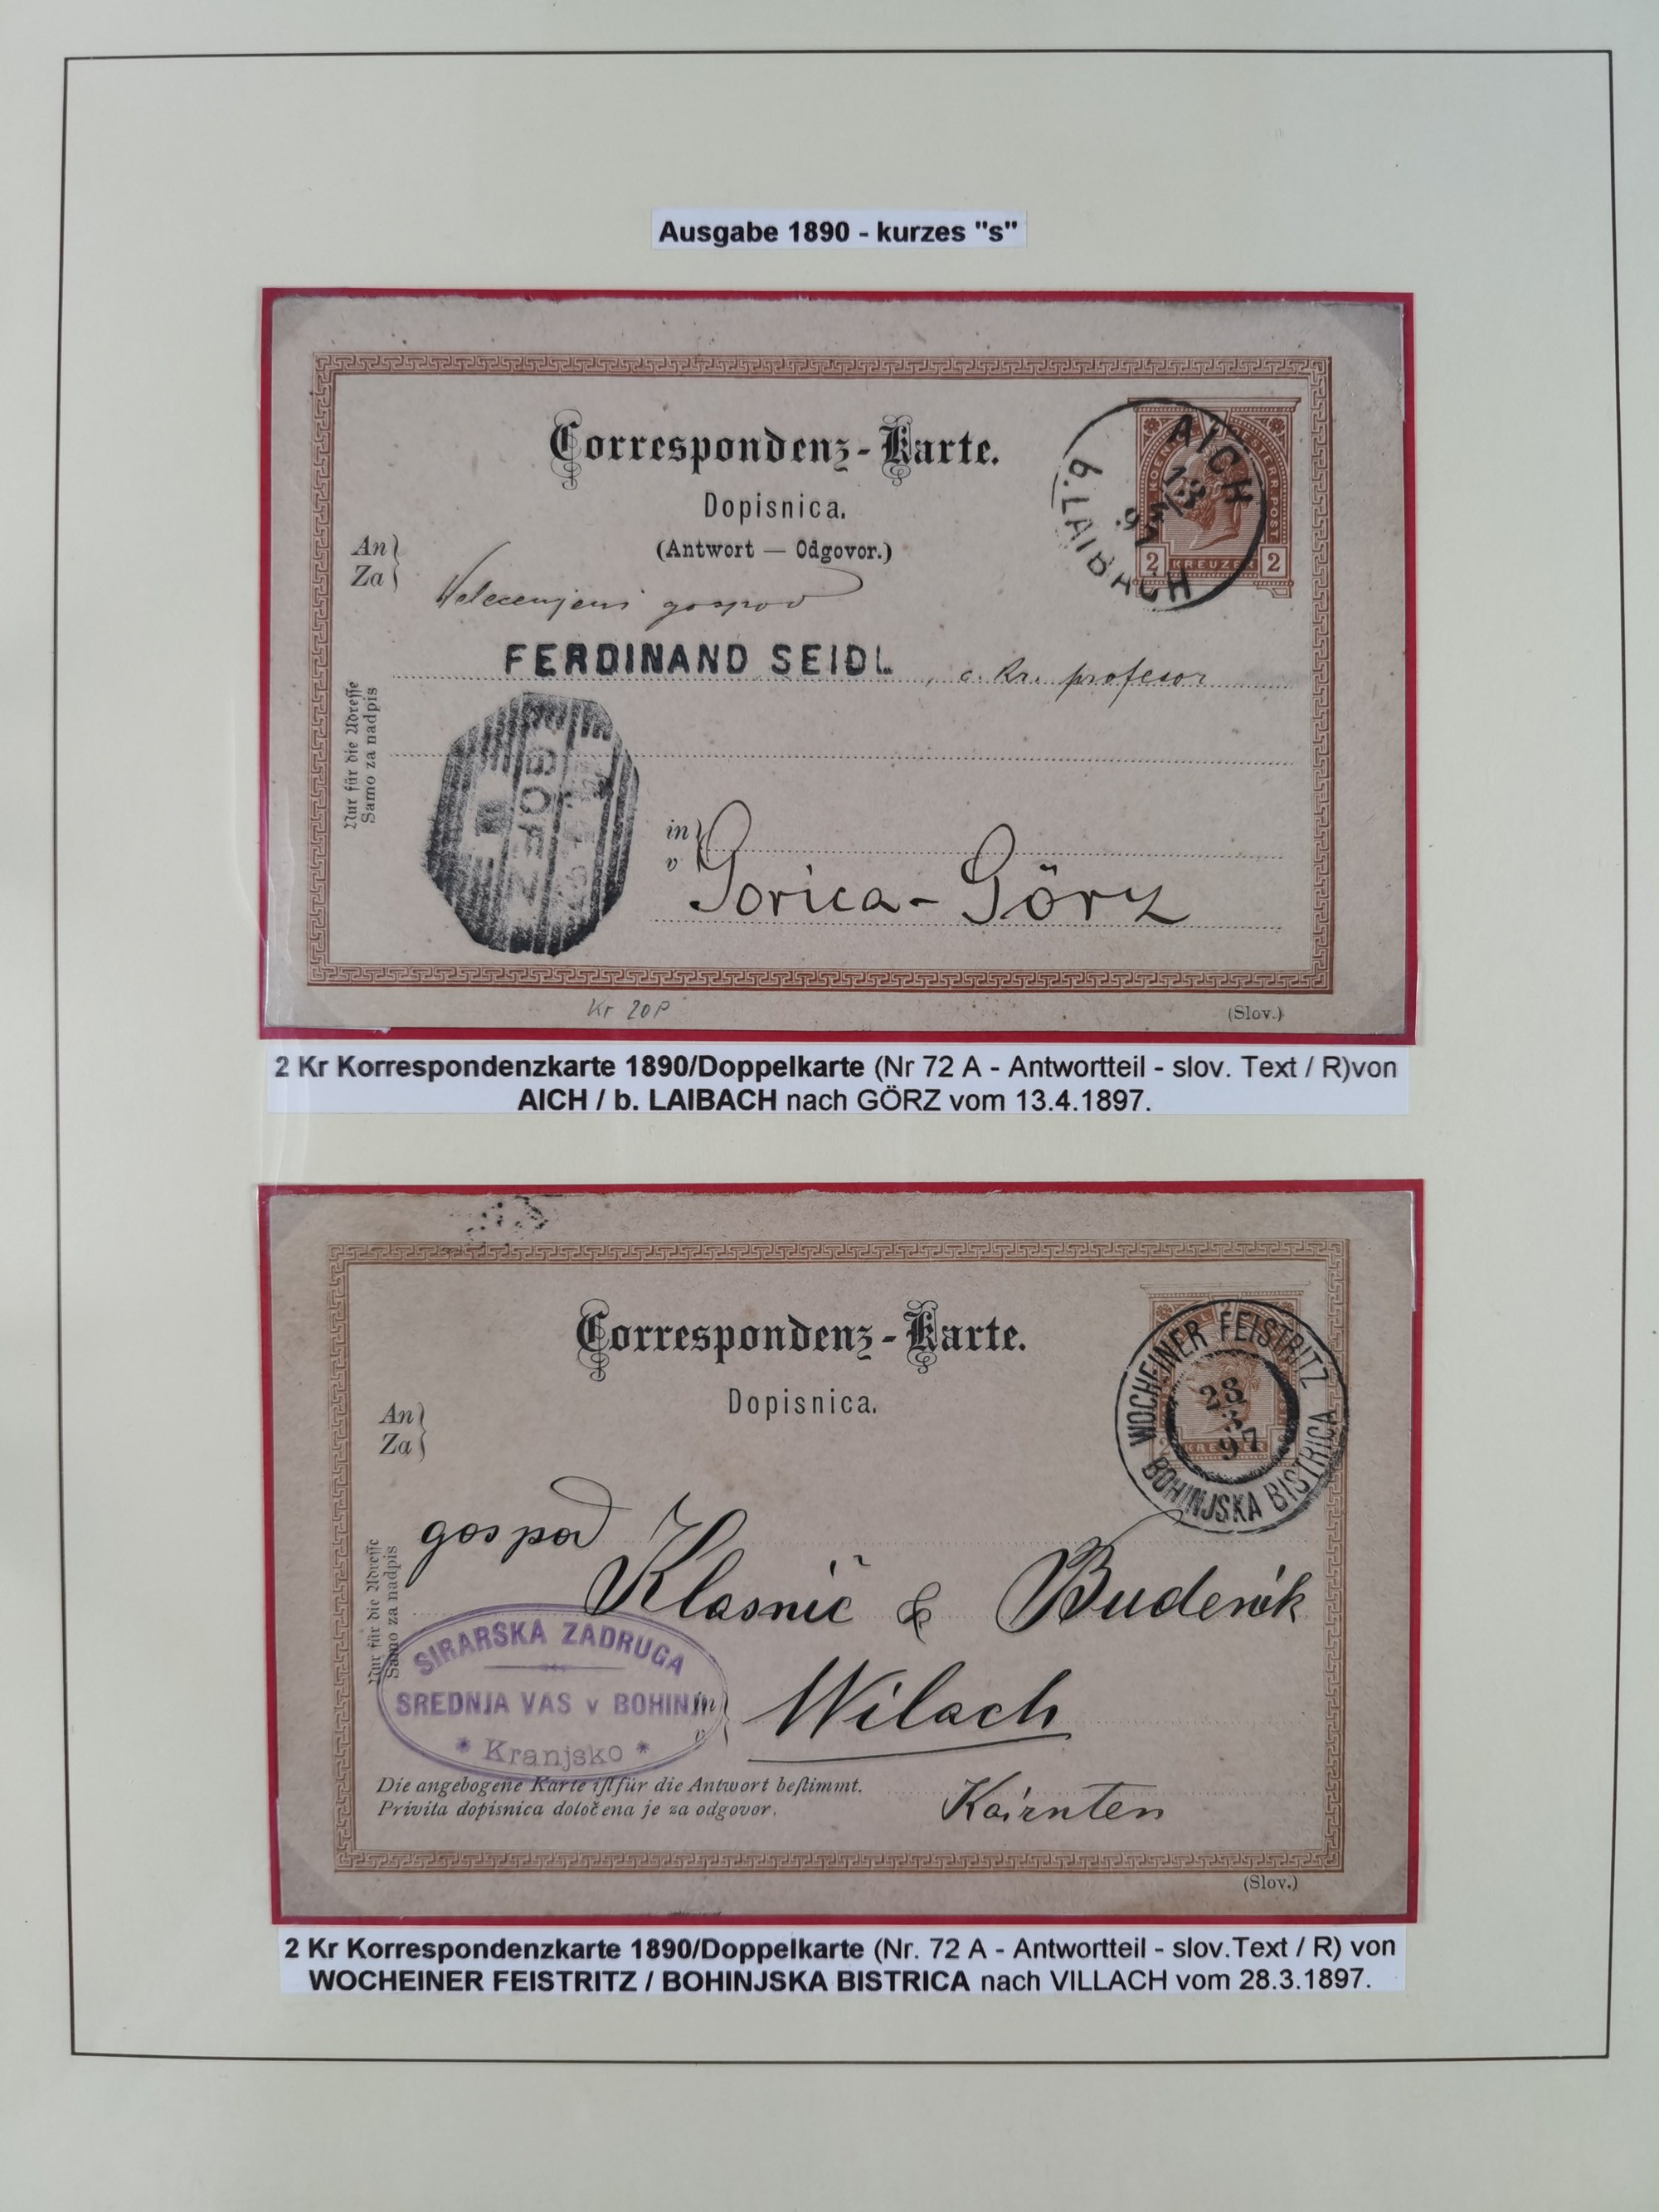 Ausgabe 1890 - kurzes "s"
Correspondenz-Karte.
Dopisnica.
(Antwort — Odgovor.)
An
Za
Velecenjeni gospod
FERDINAND SEIDL, c. kr. profesor
Nur für die Adresse
Samo za nadpis
in
v
Gorica-Görz
AICH
13
4
97
b. LAIBACH
KREUZER
2 2
Kr 20P
(Slov.)
2 Kr Korrespondenzkarte 1890/Doppelkarte (Nr 72 A - Antwortteil - slov. Text / R)von
AICH / b. LAIBACH nach GÖRZ vom 13.4.1897.
Correspondenz-Karte.
Dopisnica.
WOCHEINER FEISTRITZ
28
3
97
BOHINJSKA BISTRICA
An
Za
gospod
Klasnič &
Nur für die Adresse
Samo za nadpis
SIRARSKA ZADRUGA
SREDNJA VAS v BOHINJ
* Kranjsko *
in
v
Wilach
Die angebogene Karte iſt für die Antwort beſtimmt.
Privita dopisnica določena je za odgovor.
Kärnten
(Slov.)
2 Kr Korrespondenzkarte 1890/Doppelkarte (Nr. 72 A - Antwortteil - slov.Text / R) von
WOCHEINER FEISTRITZ / BOHINJSKA BISTRICA nach VILLACH vom 28.3.1897.